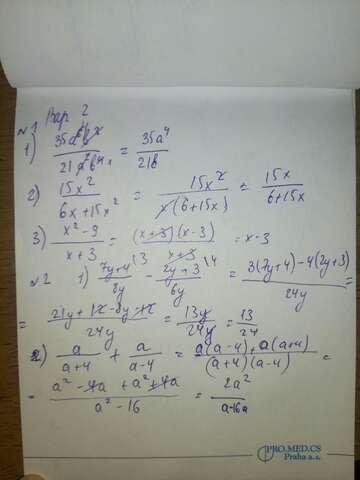 Вар 2
№1
1) 35a⁶b³ / 21a²b⁴ = 35a⁴ / 21b
2) 15x² / 6x+15x² = 15x² / x(6+15x) = 15x / 6+15x
3) x²-9 / x+3 = (x+3)(x-3) / x+3 = x-3
№2 1) 7y+4 / 8y - 2y+3 / 6y = 3(7y+4)-4(2y+3) / 24y =
= 21y+12-8y-12 / 24y = 13y / 24y = 13 / 24
2) a / a+4 + a / a-4 = a(a-4)+a(a+4) / (a+4)(a-4) =
= a²-4a+a²+4a / a²-16 = 2a² / a-16a
PRO.MED.CS
Praha a.s.